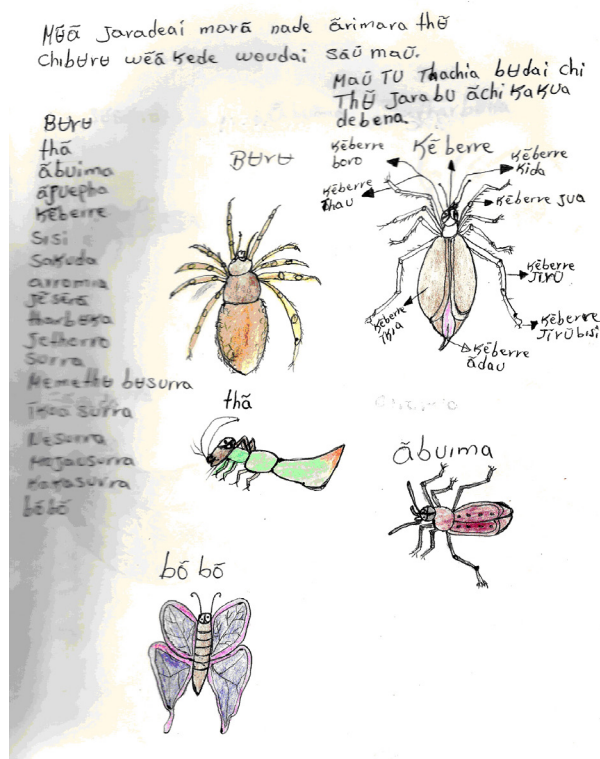 Mʉ̃ã Jaradeaí marã nade ãrimara thʉ̃
Chibʉrʉ wẽã kede woudai saũ maũ.
Maũ TU Thachia bʉdai chi
Thʉ̃ Jarabu ãchi KaKua
debena.
Bʉrʉ
thã
ãbuima
ãjuepha
Kẽberre
Sisi
Sakuda
arromia
Jẽsẽrã
tharbeka
Jetherro
Surra
Memethʉ bʉsurra
surra
Nesurra
surra
Kakasurra
bóbó
Bʉrʉ
Kẽberre
Kẽberre
boro
Kẽberre
thau
Kẽberre
Kida
Kẽberre Jua
Kẽberre
Jĩrũ
Kẽberre
Jĩrũbisi
Kẽberre
ĩkia
Kẽberre
ãdau
thã
ãbuima
bó bó